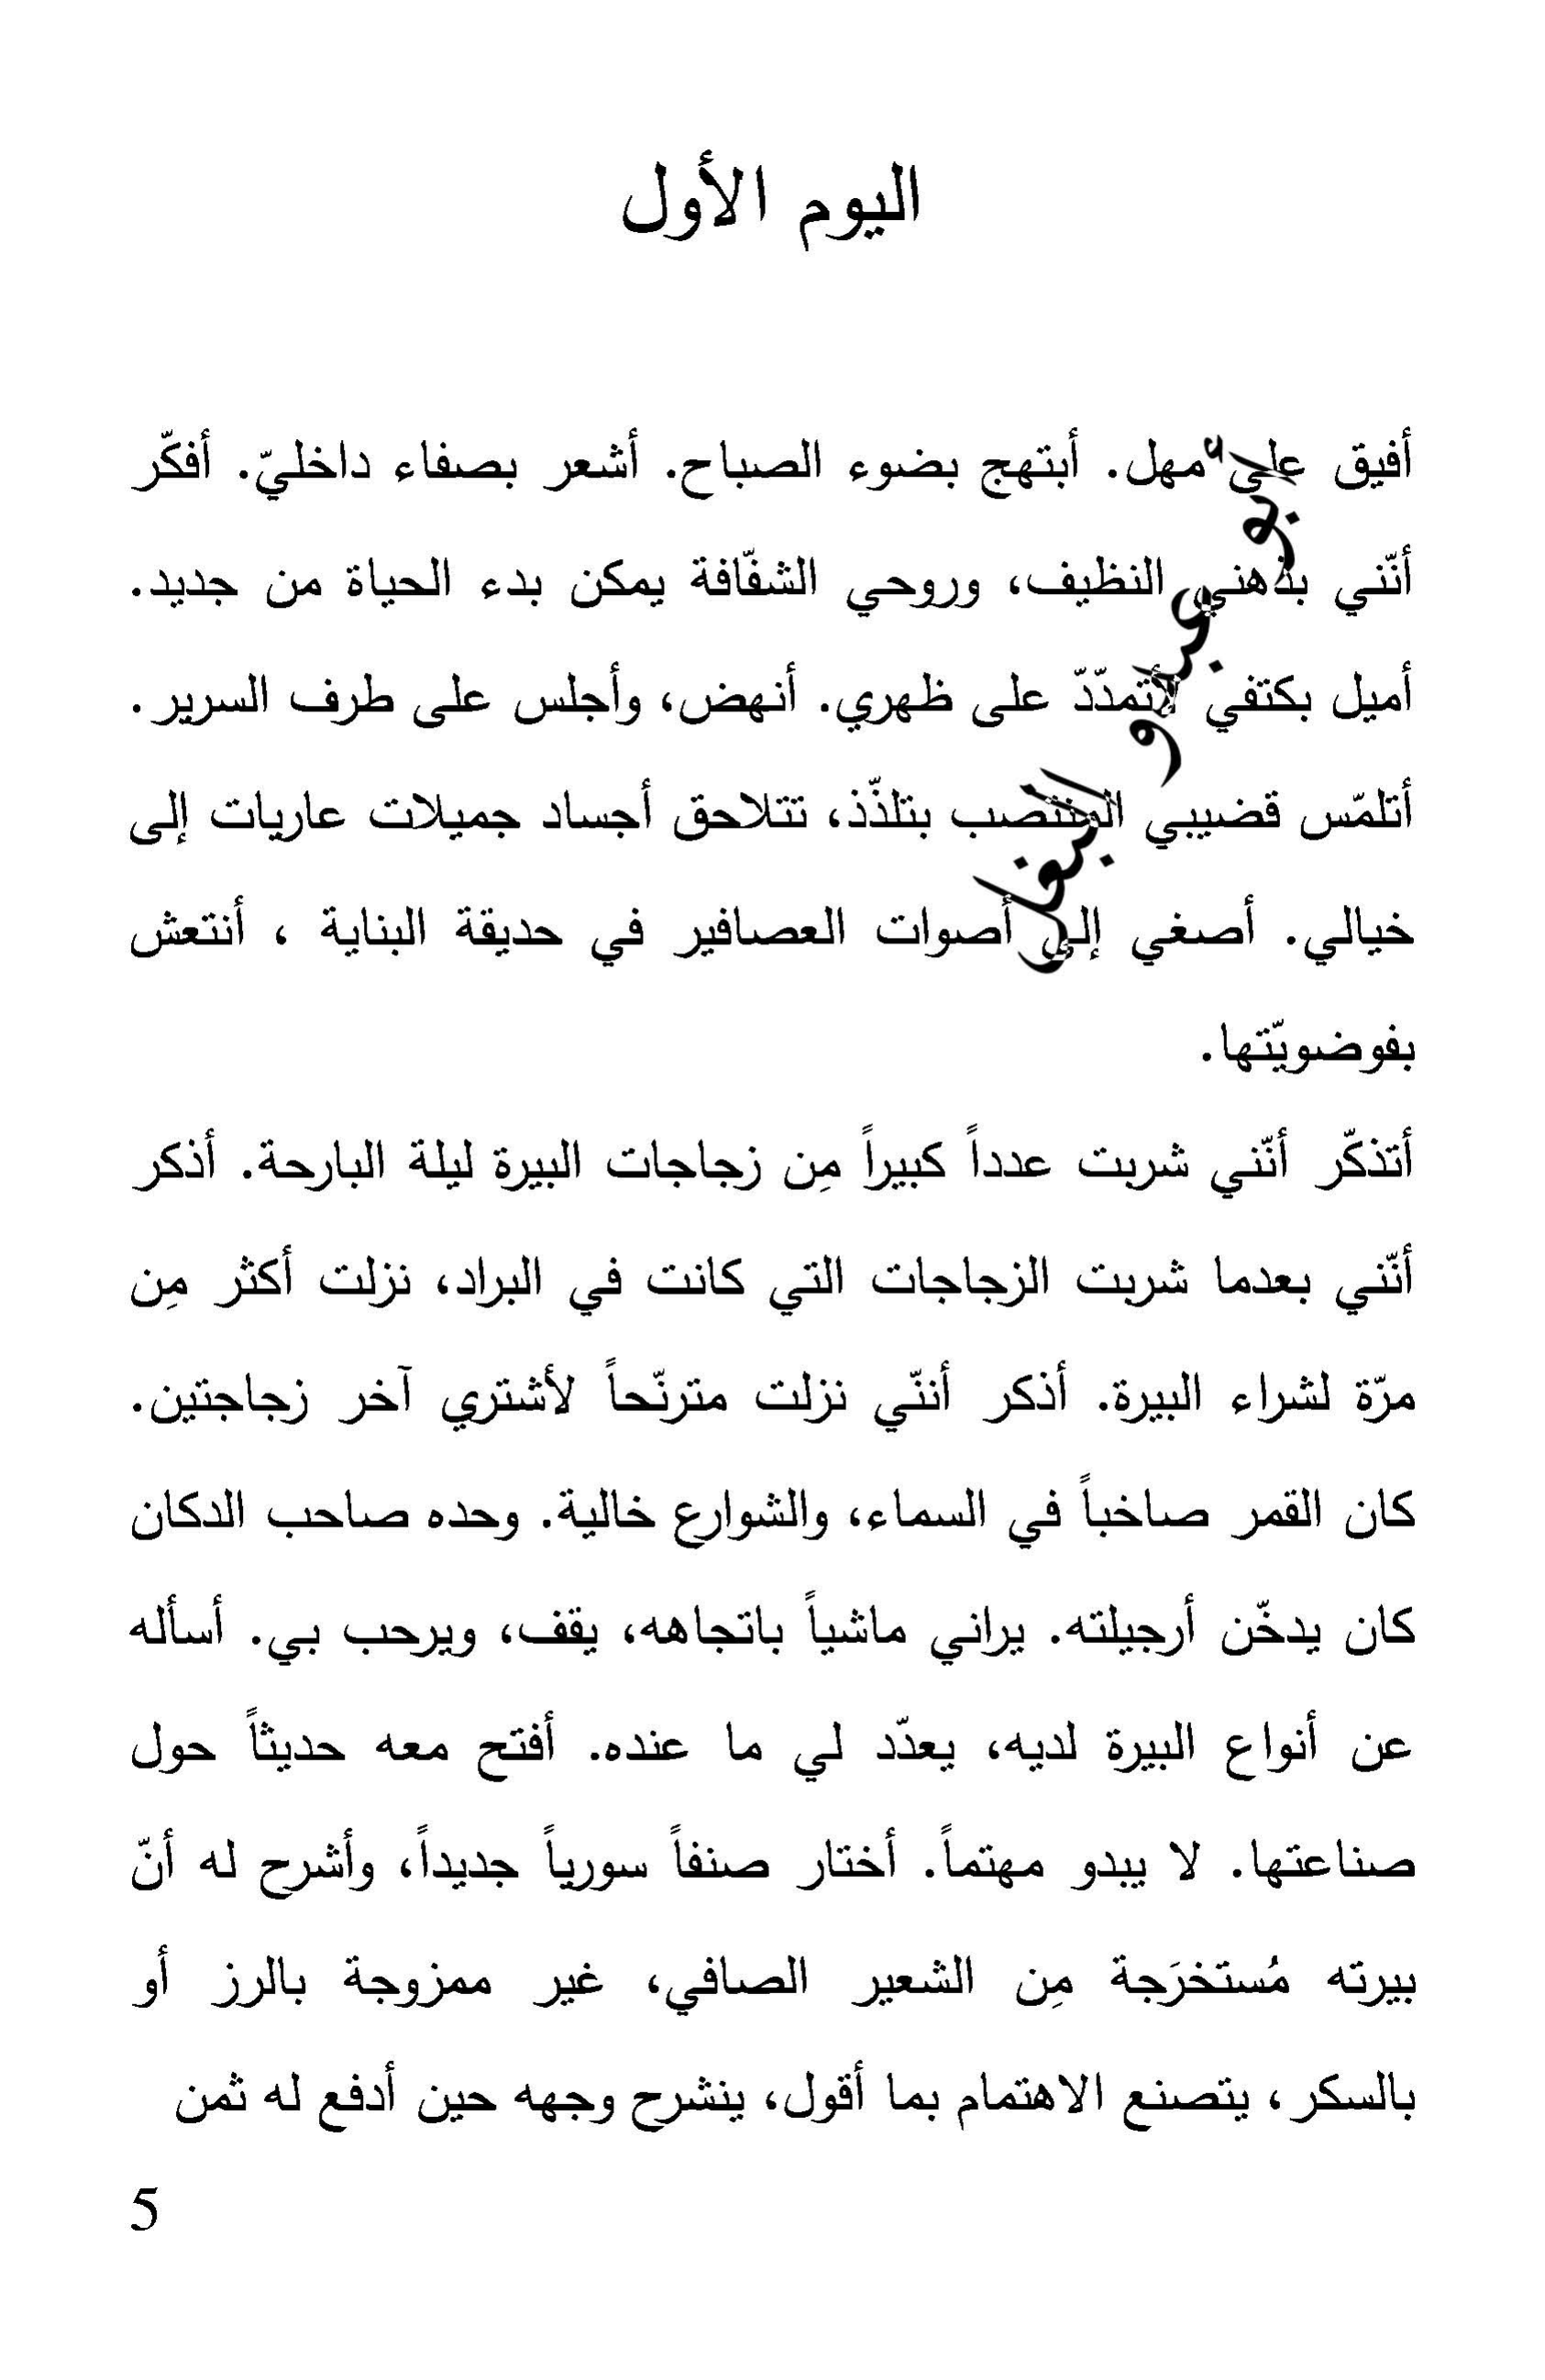 اليوم الأول
أفيق على مهل. أبتهج بضوء الصباح. أشعر بصفاء داخليّ. أفكّر
أنّني بذهني النظيف، وروحي الشفّافة يمكن بدء الحياة من جديد.
أميل بكتفي لأتمدّدّ على ظهري. أنهض، وأجلس على طرف السرير.
أتلمّس قضيبي المنتصب بتلذّذ، تتلاحق أجساد جميلات عاريات إلى
خيالي. أصغي إلى أصوات العصافير في حديقة البناية ، أنتعش
بفوضويّتها.
أتذكّر أنّني شربت عدداً كبيراً مِن زجاجات البيرة ليلة البارحة. أذكر
أنّني بعدما شربت الزجاجات التي كانت في البراد، نزلت أكثر مِن
مرّة لشراء البيرة. أذكر أننّي نزلت مترنّحاً لأشتري آخر زجاجتين.
كان القمر صاخباً في السماء، والشوارع خالية. وحده صاحب الدكان
كان يدخّن أرجيلته. يراني ماشياً باتجاهه، يقف، ويرحب بي. أسأله
عن أنواع البيرة لديه، يعدّد لي ما عنده. أفتح معه حديثاً حول
صناعتها. لا يبدو مهتماً. أختار صنفاً سورياً جديداً، وأشرح له أنّ
بيرته مُستخرَجة مِن الشعير الصافي، غير ممزوجة بالرز أو
بالسكر، يتصنع الاهتمام بما أقول، ينشرح وجهه حين أدفع له ثمن
5
أبو عبدو البغل